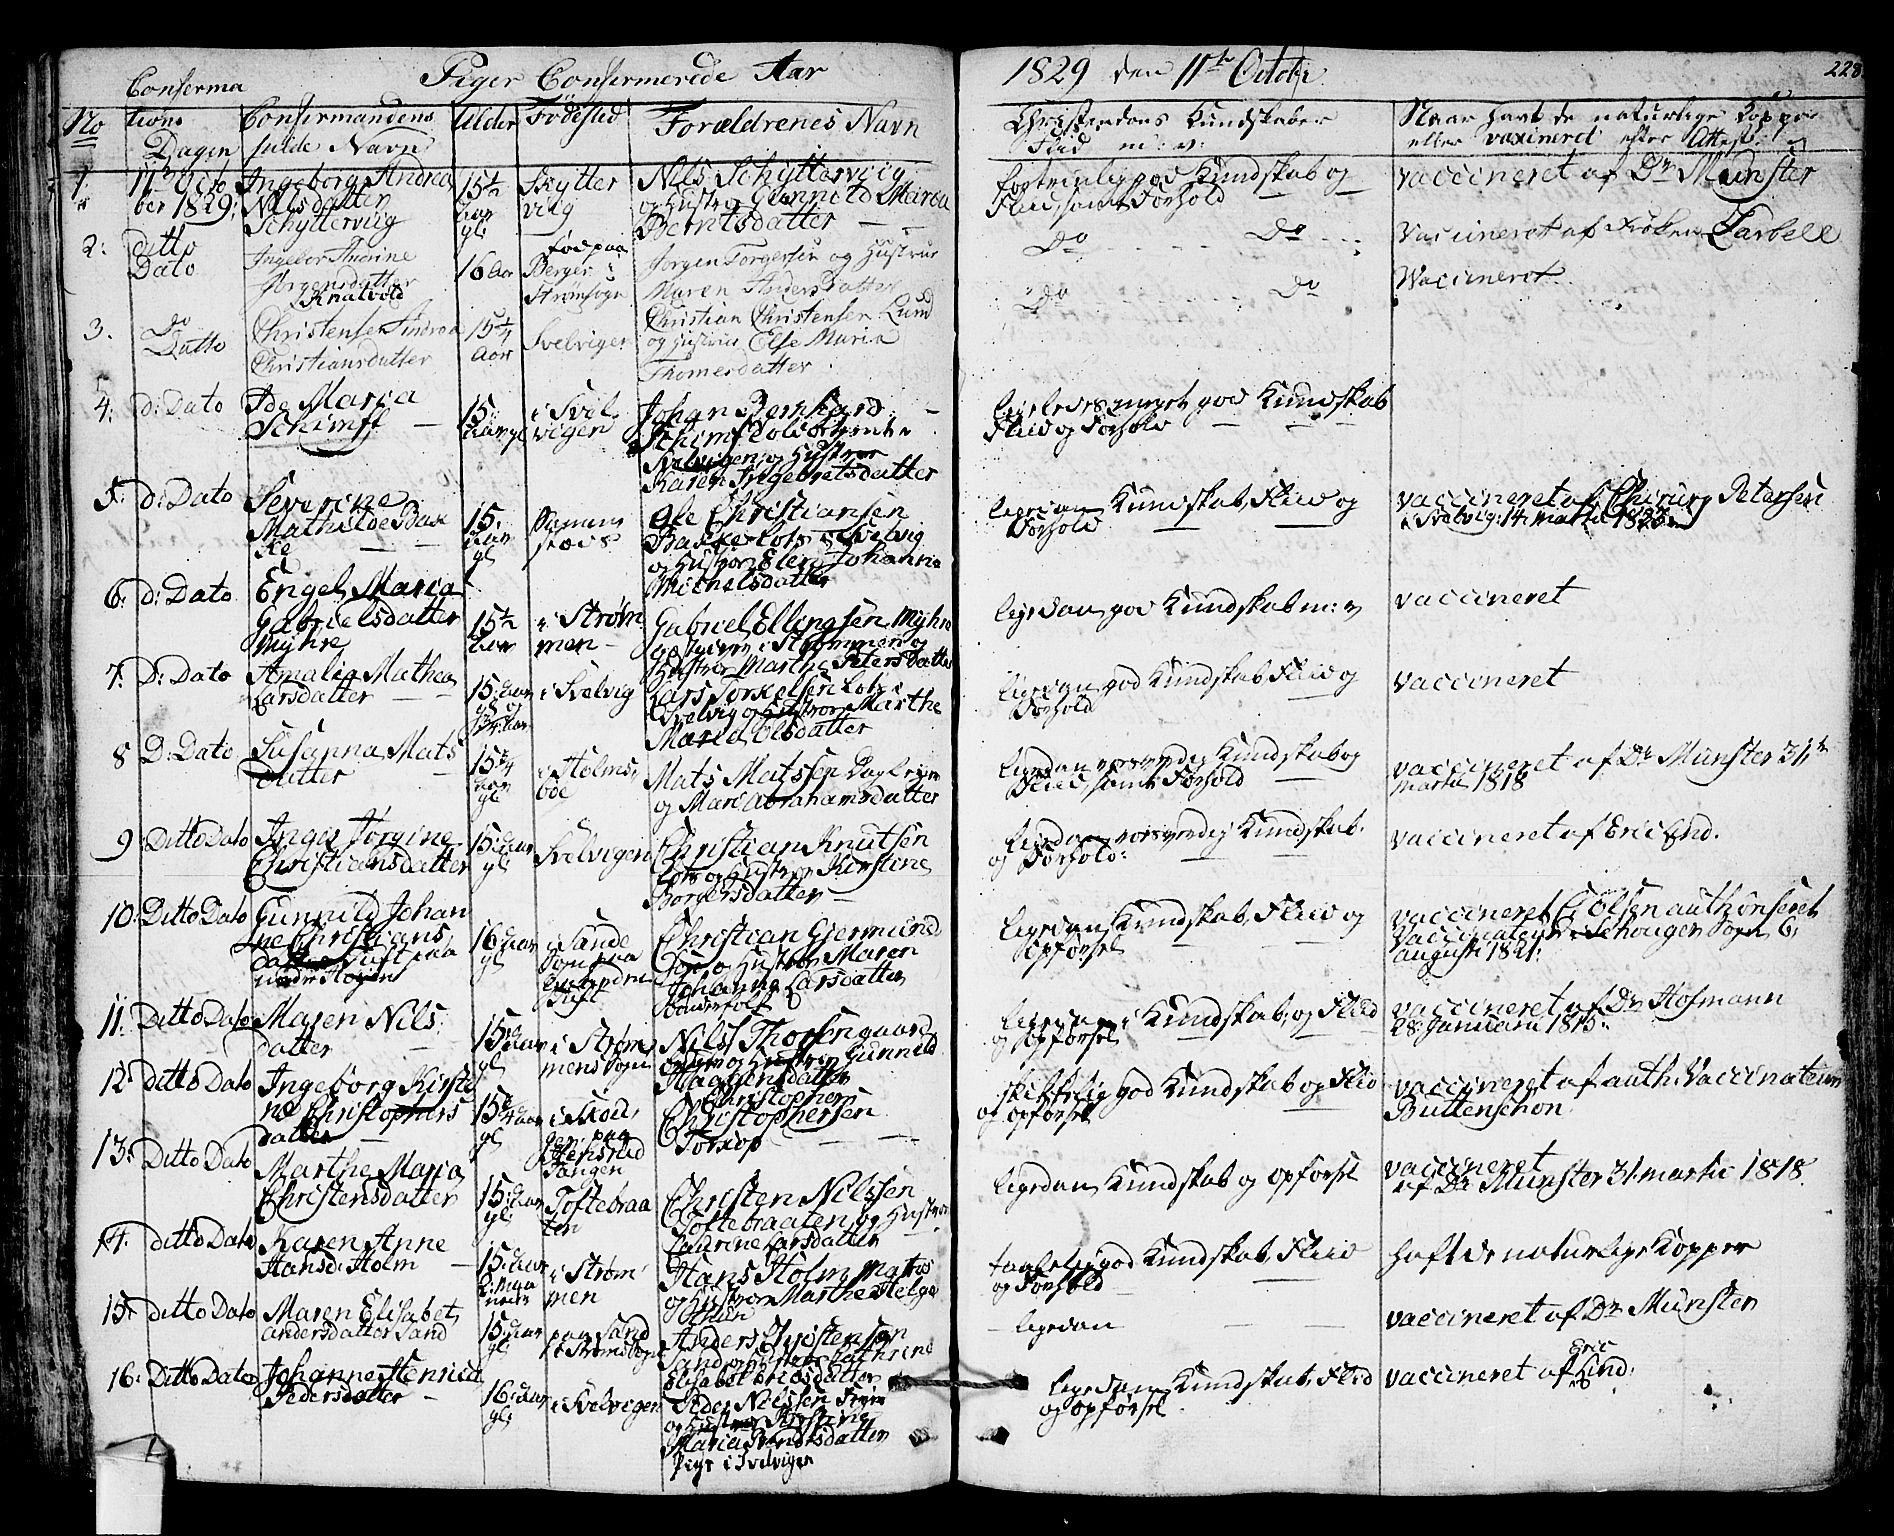 Piger Confermerede Aar 1829 den 11te Octobr.
228
No
Conferma
tions
Dagen
Confirmandens
fulde Navn
Alder
Fødested
Forældrenes Navn
Christendoms Kundskaber
Flid m: v:
Naar havt de naturlige Kopper
eller vaxineret efter Attest:
1. 11te Octo
ber 1829:
Ingeborg Andrea
Nilsdatter
Schyttervig
15½
Aar
gl:
Skytter
vig
Nils Schyttervig
og Hustro Gunnild Maria
Berntsdatter
fortrinlig god Kundskab og
Flid, samt Forhold
vaccineret af Dr Munster
2: ditto
Dato
Ingebor Andrine
Jørgensdatter
Knatvold
16 Aar
fød paa
Berger i
Strømsogn
Jørgen Torgersen og Hustrue
Maren Andersdatter
Do Do
Vaccineret af Frøken Zarbell
3. Do
Datto
Christense Andrea
Christiansdatter
15¼
Aar
Svelvigen
Christian Christensen Lund
og Hustrue Else Maria
Thomesdatter
Do Do
Vaccineret
4: d: Dato
Ide Maria
Schimff
15:
Aar gl
i Svel
vigen
Johan Bernhard
Schimf
Svelvigen og Hustroe
Karen Ingebretsdatter
ligeledes meget god Kundskab
Fliid og Forhold
5: d: Dato
Severine
Mathilde Bak
ke
15:
Aar
gl
Samme
stæds
Ole Christiansen
Bakke Lots i Svelvig
og Hustroe Elen Johanna
Michelsdatter
ligedan Kundskab, Fliid og
Forhold
vaccineret af Chirurg Petersen
i Svelvig: 14 martii
6: d: Dato
Engel Maria
Gabrielsdatter
Myhre
15½
Aar
i Strøm
men
Gabriel Ellingsen Myhre
i Strømmen og
Hustroe Marthe Petersdatter
ligedan god Kundskab m: v
vaccineret
7: D: Dato
Amalia Mathea
Larsdatter
15: Aar
gl og
¾ Aar
i Svelvig
Lars Torkelsen Lots i
Svelvig og Hustroe Marthe
Maria Olsdatter
ligedan god Kundskab Fliid og
Forhold
vaccineret
8 D: Dato
Susanna Mats
datter
15¾
Aar
gl
i Holms,
boe
Mats Matsen
og Mari Abrahamsdatter
ligedan Kundskab og
Fliid, samt Forhold
vaccineret af Dr Munster 31te
martii 1818
9 Ditto Dato
Inger Jørgine
Christiansdatter
15: Aar
gl
Svelvigen
Christian Knutsen
Lots og Hustroe Kirstine
Borgersdatter
ligedan Kundskab.
og Forhold:
vaccineret af Eric Lind.
10: Ditto Dato
Gunnild Johan
ne Christians
datter Tuft paa
16: Aar
gl
i Sande
Sogn paa
Tuft
Christian Gjermund
og Hustroe Maren
Johanna Larsdatter
Bonderfolk
ligedan Kundskab, Fliid og
Opførsel
vaccineret C Olsen authoriseret
Vaccinateur i Schouger Sogn 6.
augusti 1821.
11: Ditto Dato
Maren Nils
datter
15: Aar
gl
i Strøm
mens Sogn
Nills Thorsen
og Hustroe Gunnild
Haagensdatter
ligedan i Kundskab, og Fliid
og Opførsel
vaccineret af Dr Hofmann
28 Januarii
12 Ditto Dato
Ingeborg Kirsti
ne Christophers
datter
15¾ Aar
gl
i Skou,
gen paa
Tangen
Christopher
Christophersen
Torsop
skikkelig god Kundskab og Fliid
og Opførsel
vaccineret af auth: Vaccinateur
Buttenschøn
13: Ditto Dato
Marthe Maria
Christensdatter
15: Aar
gl:
Toftebraa
ten
Christen Nilssen
Toftebraaten og Hustroe
Laurine Larsdatter
ligedan Kundskab og Opførsel
vaccineret
af Dr Munster 31. martii 1818.
14. ditto Dato
Karen Anne
Hansd: Holm
15: Aar
i Strøm
men
Hans Holm
og Hustroe Marthe Helge
taalelig god Kundskab, Fliid
og Forhold
haft de naturlige Kopper
15. ditto Dato
Maren Elisabet,
andersdatter Sand
15: Aar
gl:
paa Sand
i Strømsogn
Anders Christensen
Sand og Hustroe Cathrine
Elisabet Ericsdatter
ligedan
vaccineret af Dr Munster
16: Ditto Dato
Johanne Henrica
Pedersdatter
16: Aar
gl:
i Svelvigen
Peder Nilssen
og Hustroe Kirstine
Maria Berndtsdatter
i Svelvigen
ligedan Kundskab, Fliid
og opførsel
vaccineret af Eric
Lind.